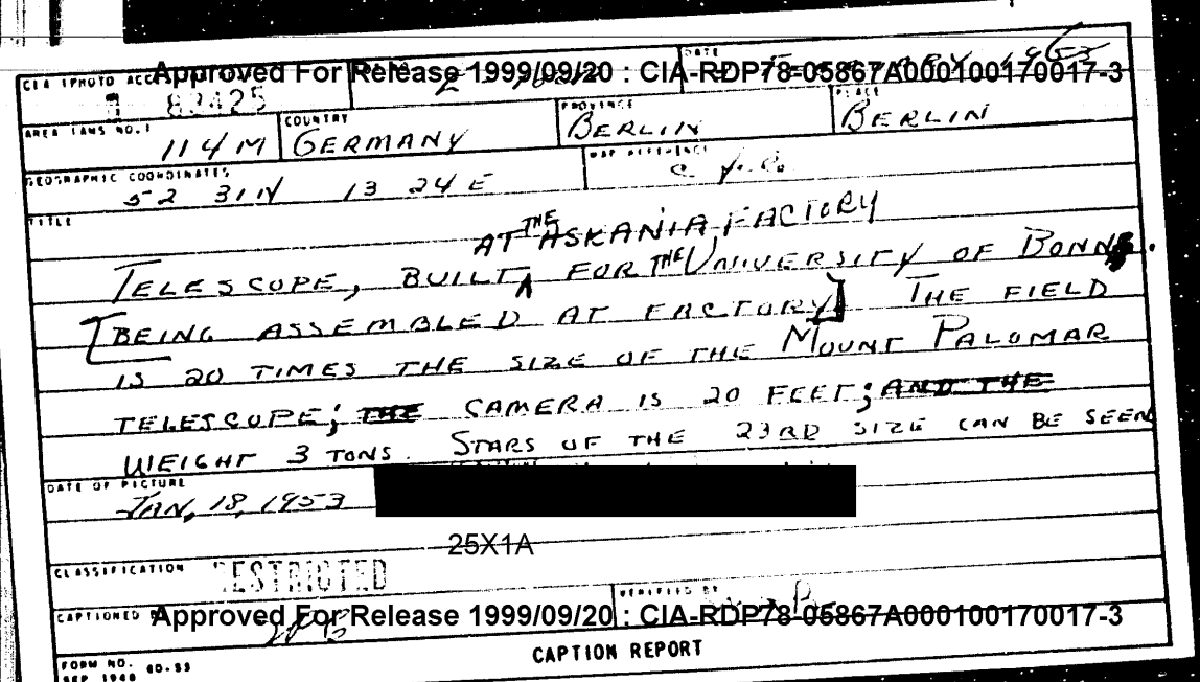 CIA (PHOTO ACC
DATE
Approved For Release 1999/09/20 : CIA-RDP78-05867A000100170017-3
1953
82425
AREA (AMS NO.) COUNTRY PROVINCE PLACE
114M GERMANY BERLIN BERLIN
GEOGRAPHIC COORDINATES MAP REFERENCE
52 31N 13 24E
TITLE
AT THE ASKANIA FACTORY
TELESCOPE, BUILT ^ FOR THE UNIVERSITY OF BONN.
[BEING ASSEMBLED AT FACTORY] THE FIELD
IS 20 TIMES THE SIZE OF THE MOUNT PALOMAR
TELESCOPE; THE CAMERA IS 20 FEET; AND THE
WEIGHT 3 TONS. STARS OF THE 23RD SIZE CAN BE SEEN
DATE OF PICTURE
JAN, 18, 1953
25X1A
CLASSIFICATION RESTRICTED
VERIFIED BY
CAPTIONED
Approved For Release 1999/09/20 : CIA-RDP78-05867A000100170017-3
CAPTION REPORT
FORM NO.
SEP 1948